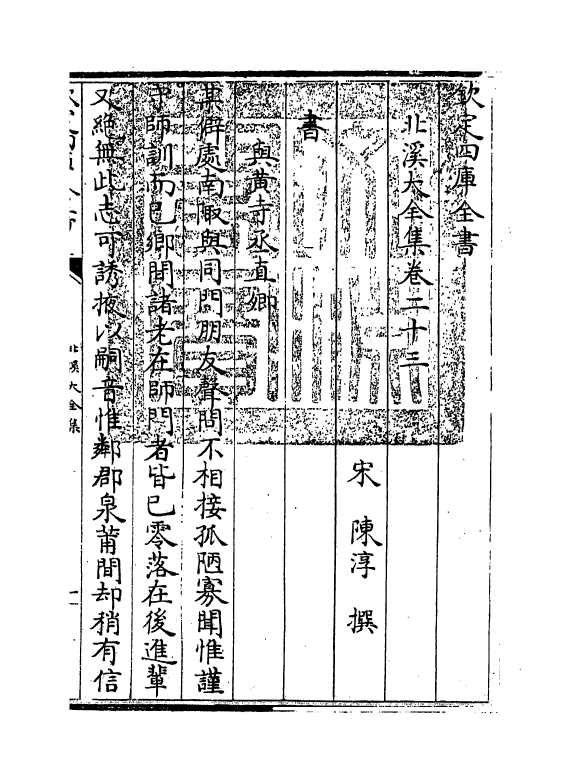 欽定四庫全書
北溪大全集卷二十三
宋 陳淳 撰
書
與黃寺丞直卿
某僻處南陬與同門朋友聲問不相接孤陋寡聞惟謹
守師訓而已鄉閭諸老在師門者皆已零落在後進輩
又絶無此志可誘掖以嗣音惟鄰郡泉莆間却稍有信
北溪大全集